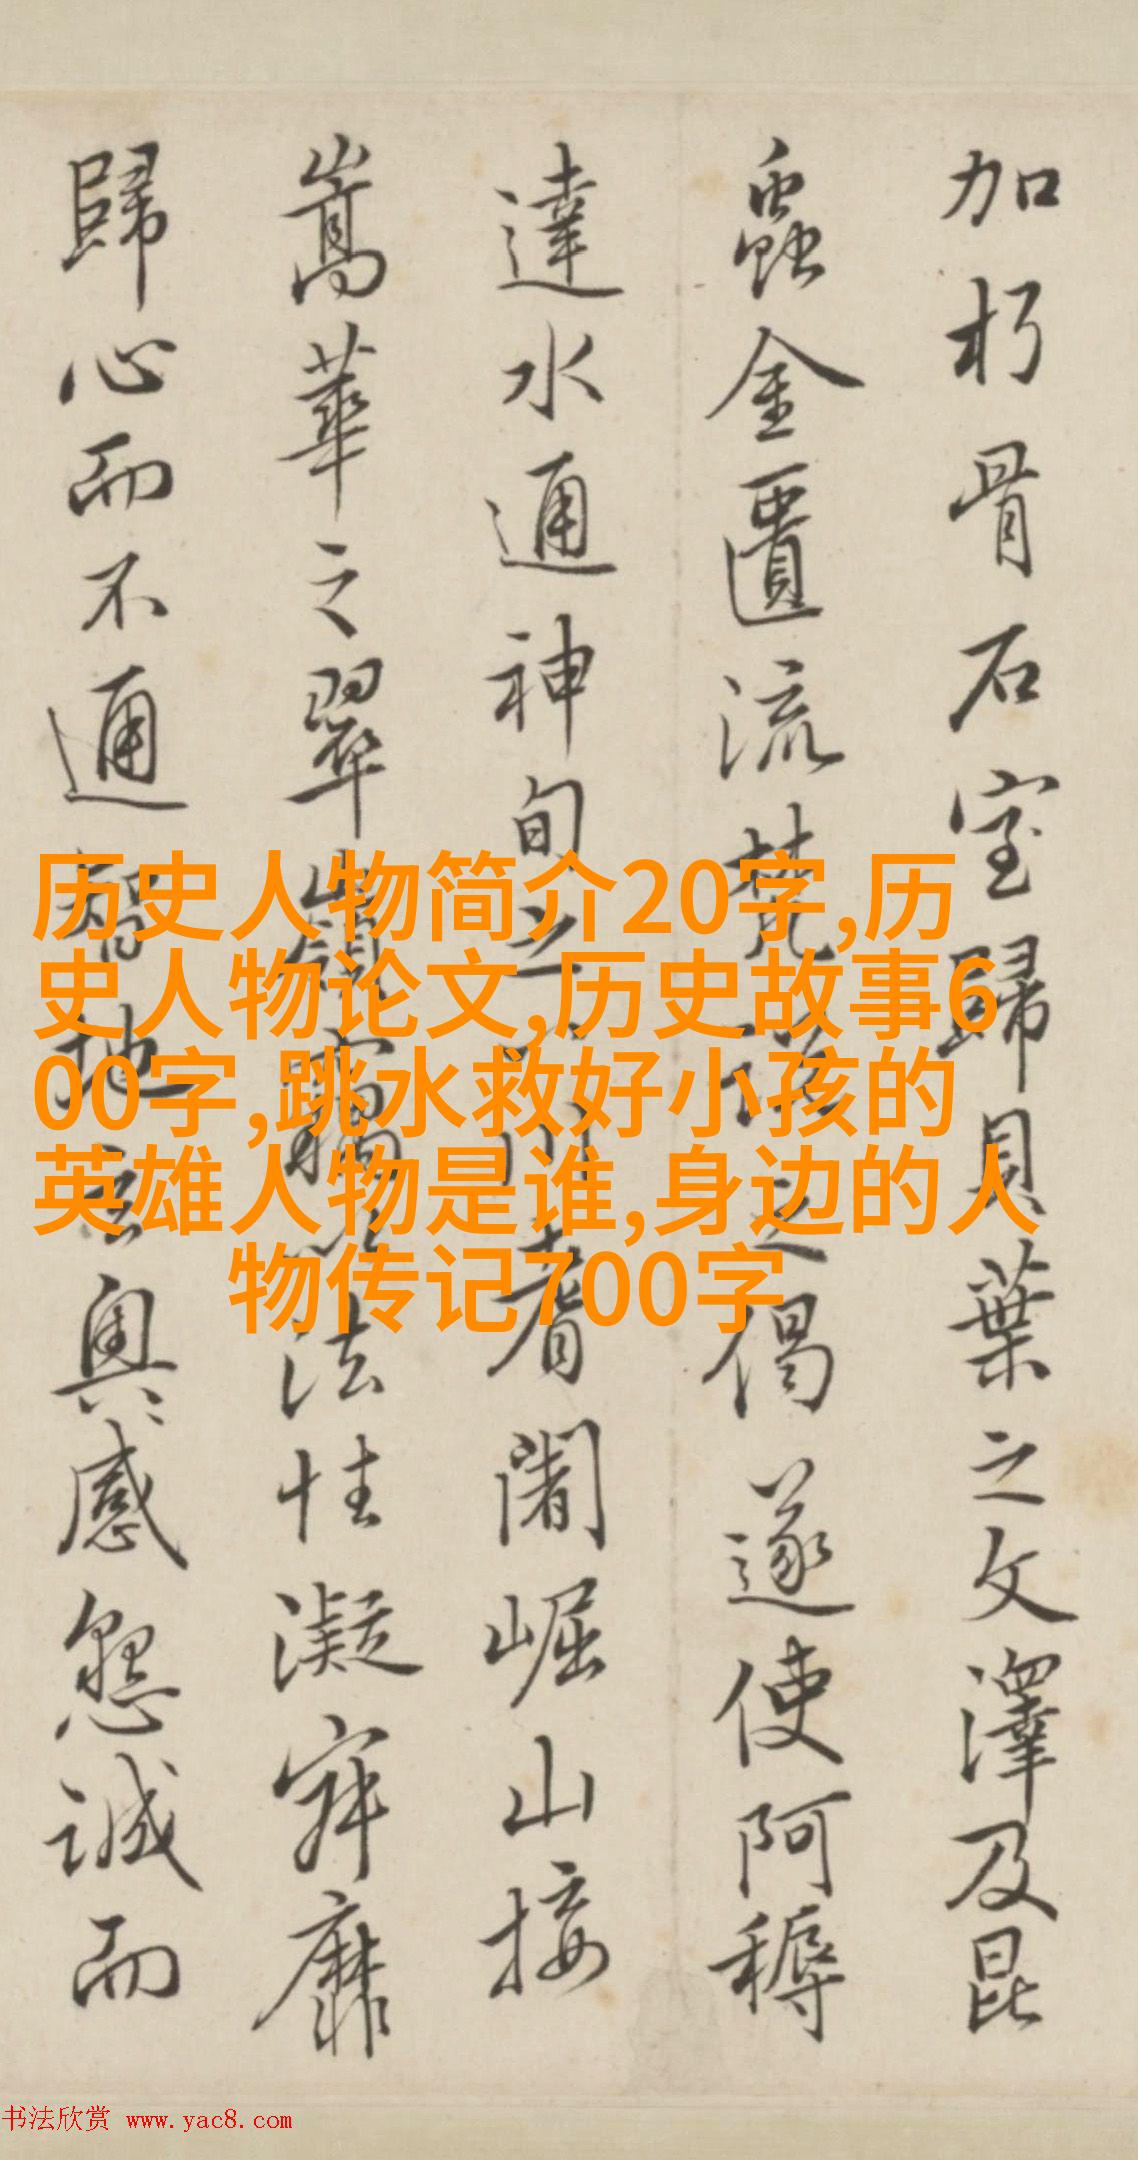 加朽骨石室歸貝葉之文澤及昆
蟲金匱流梵說之偈遂使阿耨
達水通神甸之川耆闍崛山接
嵩華之翠嶺竊以法性凝寂靡
歸心而不通智地玄奥感懇誠而
历史人物简介20字,历
史人物论文,历史故事6
00字,跳水救好小孩的
英雄人物是谁,身边的人
物传记700字
书法欣赏 www.yac8.com